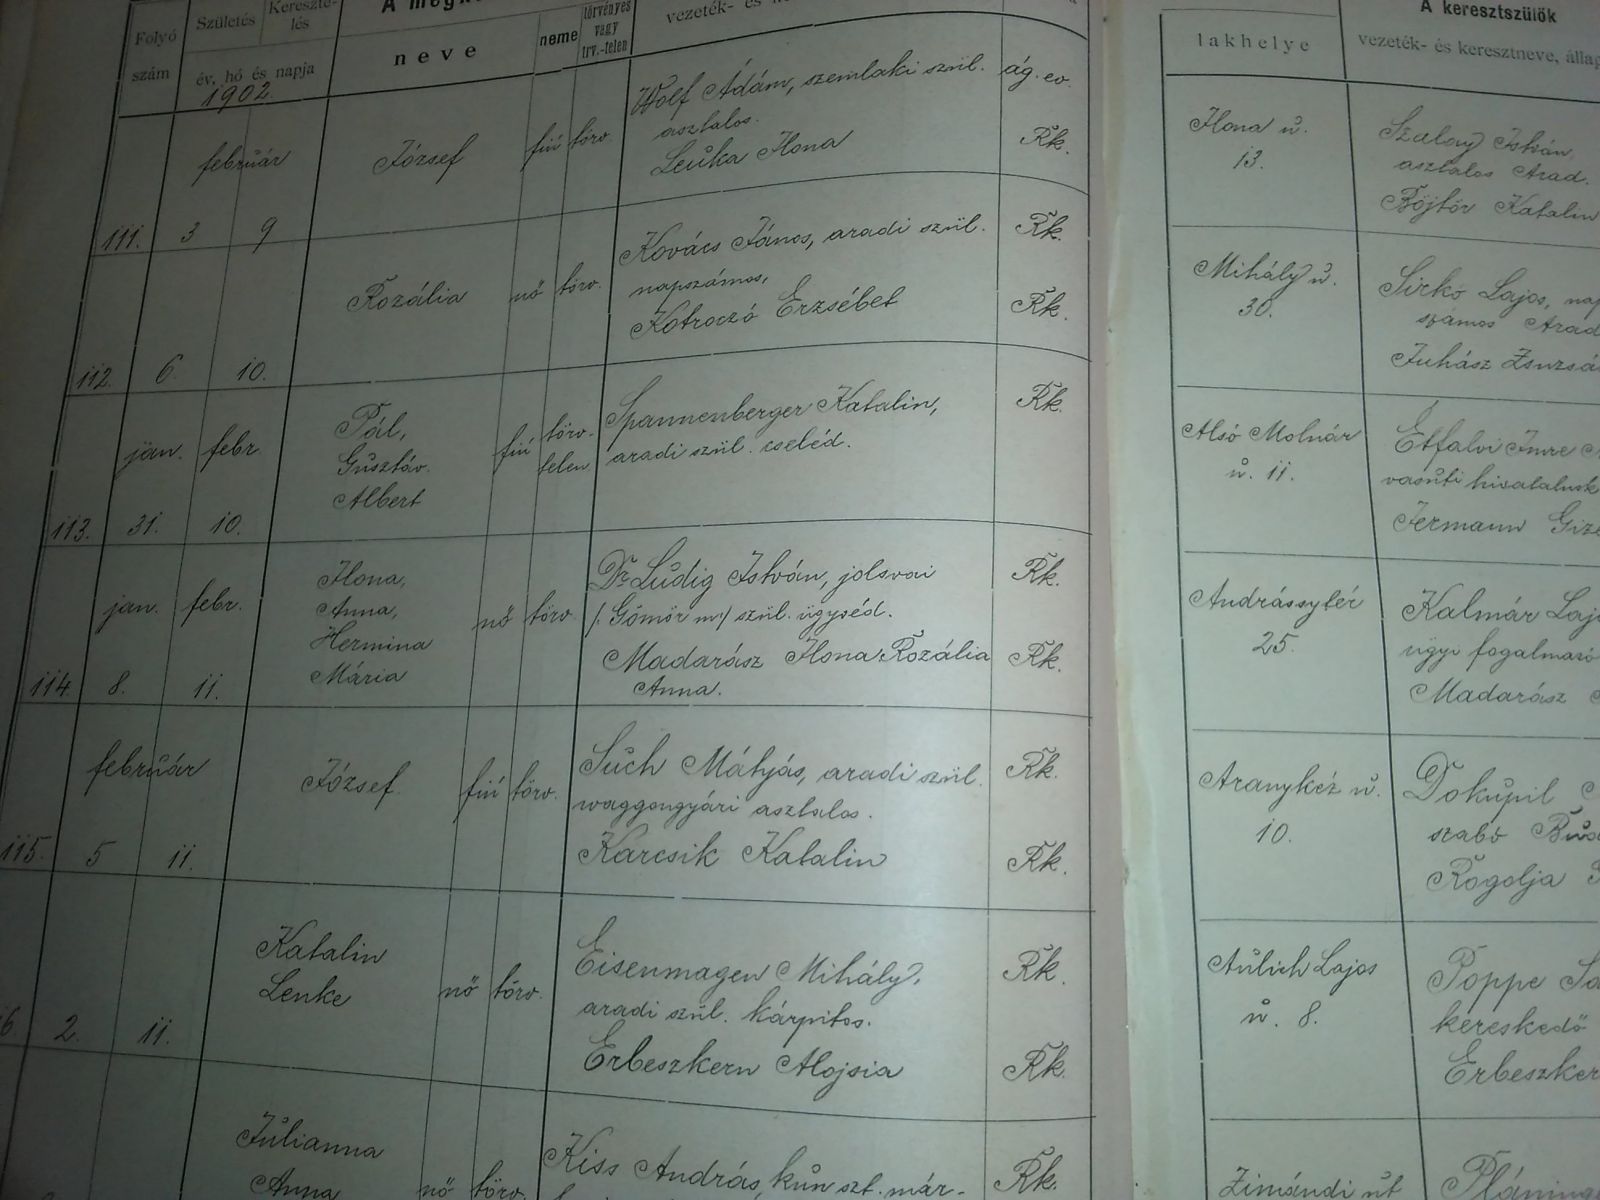 Folyó
szám
Születés
Keresztelés
év, hó és napja
1902.
neve
neme
törvényes
vagy
trv.-telen
lakhelye
A keresztszülők
vezeték- és keresztneve,
február
111. 3 9
József
fiú törv.
Wolf Ádám, szemlaki szül.
asztalos.
Leuka Ilona
ág. ev.
Rk.
Ilona u.
13.
Szalay István,
asztalos Arad.
Böjtör Katalin
112. 6. 10.
Rozália
nő törv.
Kovács János, aradi szül.
napszámos,
Kotroczó Erzsébet
Rk.
Rk.
Mihály u.
30.
Sirkó Lajos, nap
számos Arad
Juhász Zsuzsá
jan. febr.
113. 31. 10.
Pál,
Gusztáv.
Albert
fiú törv.-
telen
Spannenberger Katalin,
aradi szül. cseléd.
Rk.
Alsó Molnár
u. 11.
Etfalvi Imre
vasúti
Jermann Giz
jan. febr.
114. 8. 11.
Ilona,
Anna,
Hermina
Mária
nő törv.
Dr. Ludig István, jolsvai
/: Gömör m:/ szül. ügyvéd.
Madarász Ilona Rozália
Anna.
Rk.
Rk.
Andrássy tér
25.
Kalmár Laj
ügyi fogalmazó
Madarász
február
115. 5 11.
József.
fiú törv.
Such Mátyás, aradi szül.
waggongyári asztalos.
Karcsik Katalin
Rk.
Rk.
Aranykéz u.
10.
Dokupil
szabó Bud
Rogolja
6 2. 11.
Katalin
Lenke
nő törv.
Eisenmagen Mihály,
aradi szül. kárpitos.
Erbeszkern Alojsia
Rk.
Rk.
Aulich Lajos
u. 8.
Poppe
kereskedő
Erbeszker
Julianna
Anna
nő törv.
Kiss András, kun szt. már-
Rk.
Zimándi út